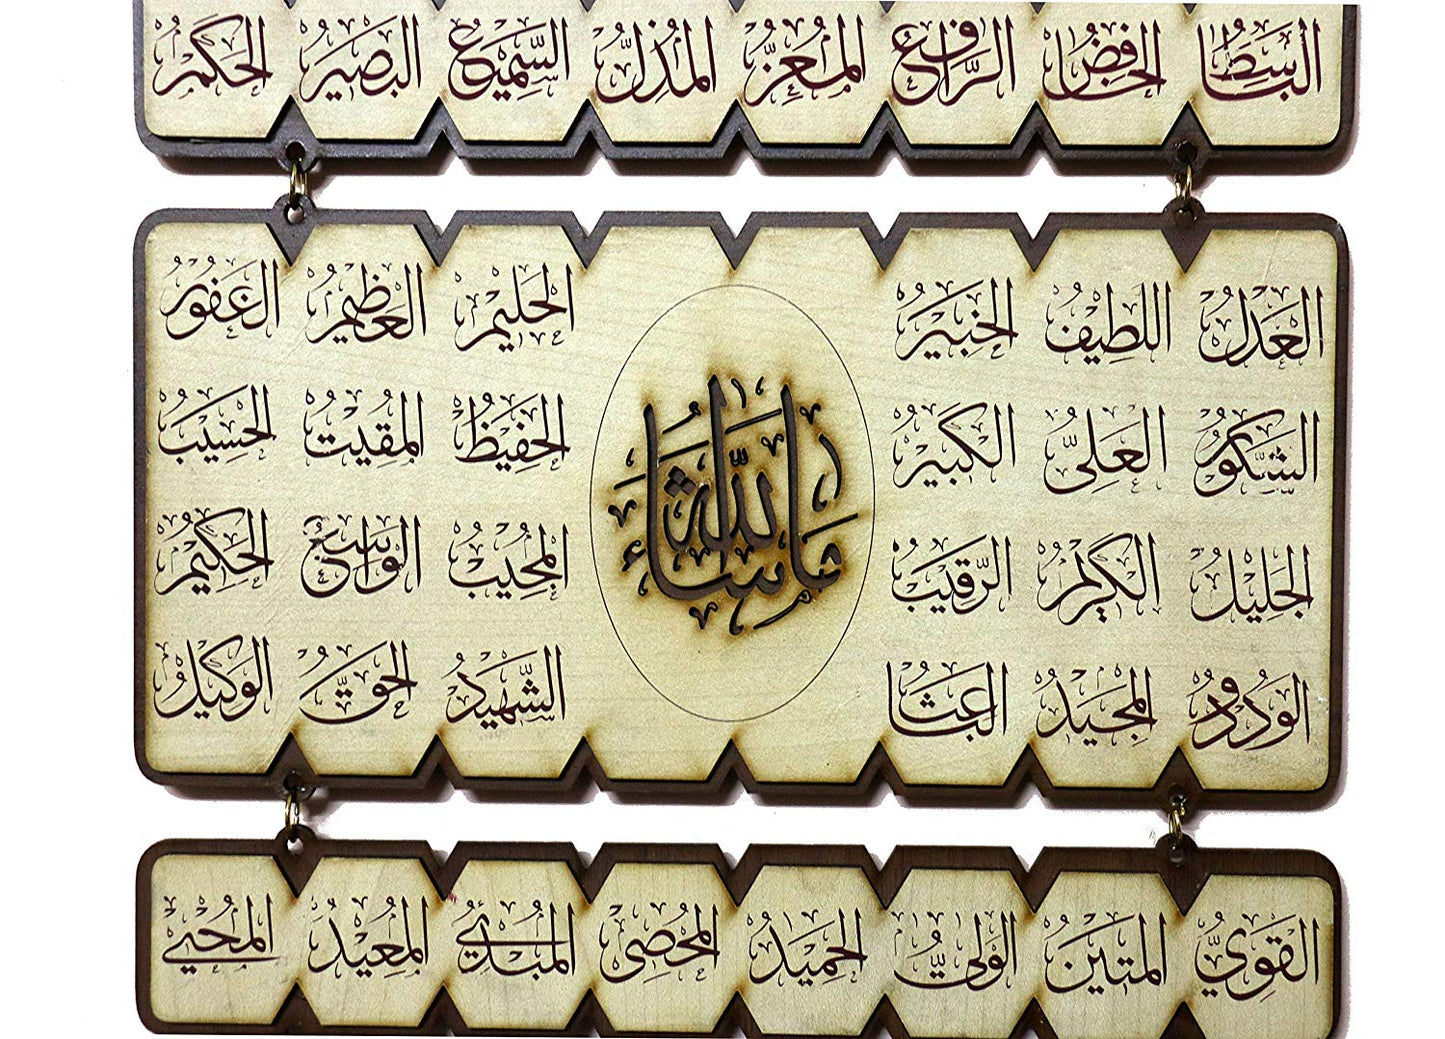 الباسط الخافض الرافع المعز المذل السميع البصير الحكم
العدل اللطيف الخبير الحليم العظيم الغفور
الشكور العلي الكبير الحفيظ المقيت الحسيب
ما شاء الله
الجليل الكريم الرقيب المجيب الواسع الحكيم
الودود المجيد الباعث الشهيد الحق الوكيل
القوي المتين الولي الحميد المحصي المبدئ المعيد المحيي